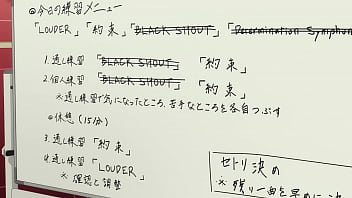 ◎今日の練習メニュー
「LOUDER」「約束」「BLACK SHOUT」「Determination Symphon
1. 通し練習「BLACK SHOUT」「約束」
2. 個人練習「BLACK SHOUT」「約束」
※通し練習で気になったところ、苦手なところを各自つぶす
◎休憩(15分)
3. 通し練習「約束」
4. 通し練習「LOUDER」
※確認と調整
セトリ決め
※残り一曲を早めに決